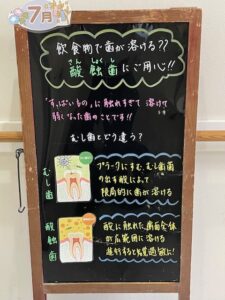 7月
飲食物で歯が溶ける??
さん しょく し
酸蝕歯にご用心!!
"すっぱいもの"に触れすぎて 溶けて
弱くなった歯のことです!!
むし歯とどう違う?
むし歯
プラークにすむ むし歯菌
の出す酸によって
限局的に歯が溶ける
酸蝕歯
酸に触れた歯面全体
が広範囲に溶ける
進行すると知覚過敏に!